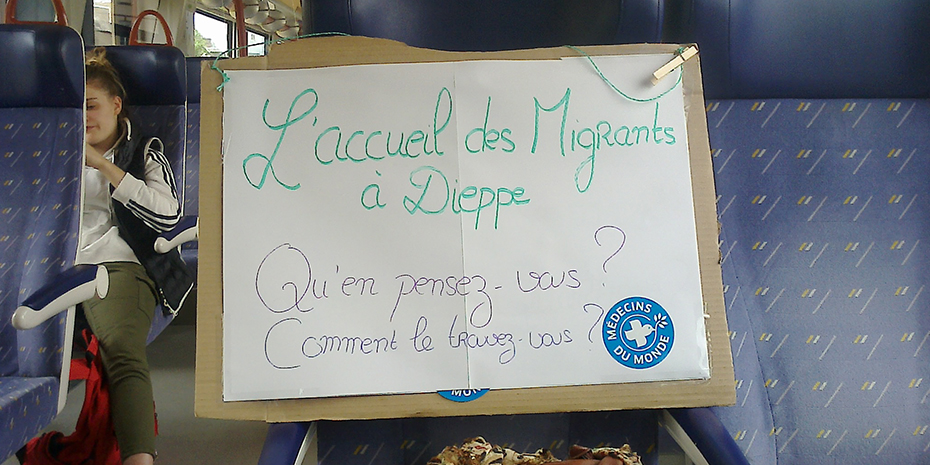 L'accueil des Migrants
à Dieppe
Qu'en pensez-vous ?
Comment le trouvez-vous ?
MÉDECINS
DU MONDE